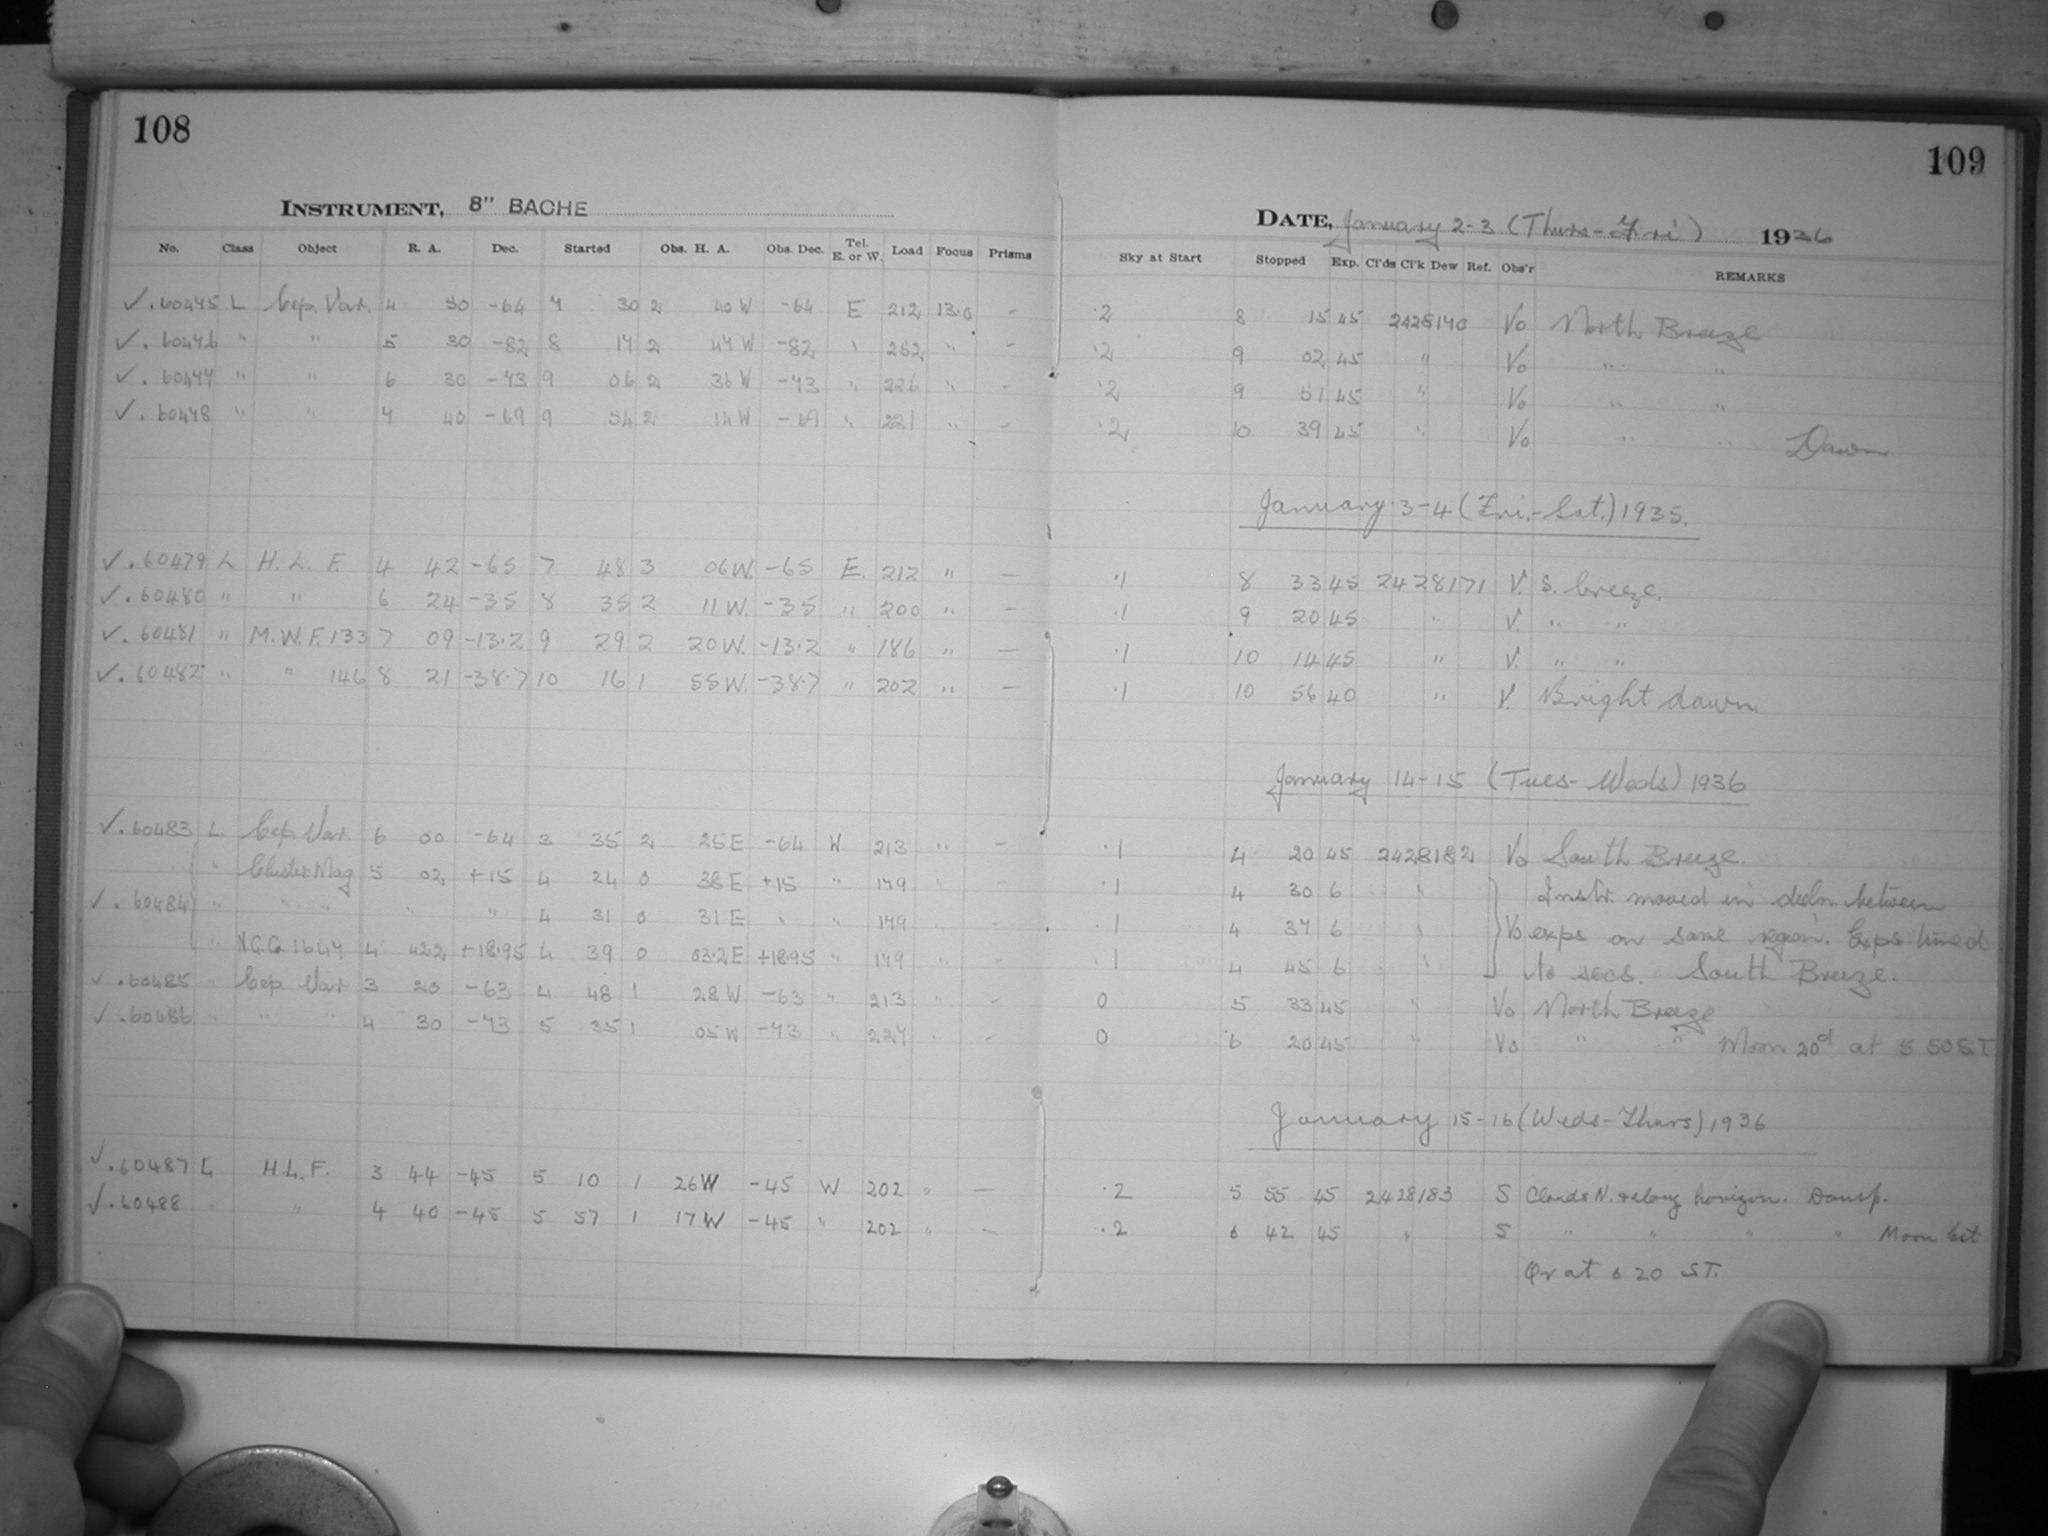 108
INSTRUMENT, 8" BACHE
No. Class Object R. A. Dec. Started Obs. H. A. Obs. Dec. Tel. E. or W. Load Focus Prisms
✓ . 60475 L Cep. Var. 4 30 -64 7 30 2 40 W -64 E 212 13.0 -
✓ . 60476 " " 5 30 -82 8 17 2 47 W -82 " 252 " -
✓ . 60477 " " 6 30 -73 9 06 2 36 W -73 " 226 " -
✓ . 60478 " " 7 40 -69 9 54 2 14 W -69 " 221 " -
✓ . 60479 L H. L. F. 4 42 -65 7 48 3 06 W. -65 E. 212 " -
✓ . 60480 " " 6 24 -35 8 35 2 11 W. -35 " 200 " -
✓ . 60481 " M. W. F. 133 7 09 -13.2 9 29 2 20 W. -13.2 " 186 " -
✓ . 60482 " " 146 8 21 -38.7 10 16 1 55 W. -38.7 " 202 " -
✓ . 60483 L Cep. Var. 6 00 -64 3 35 2 25 E -64 W 213 " -
" Cluster Mag 5 02 +15 4 24 0 38 E +15 " 179 " -
✓ . 60484 " " " " " 4 31 0 31 E " " 179 " -
" N.G.C. 1647 4 42.2 +18.95 4 39 0 03.2 E +18.95 " 179 " -
✓ . 60485 " Cep Var 3 20 -63 4 48 1 28 W -63 " 213 " -
✓ . 60486 " " " 4 30 -73 5 35 1 05 W -73 " 227 " -
✓ . 60487 L H. L. F. 3 44 -45 5 10 1 26 W -45 W 202 " -
✓ . 60488 " " 4 40 -45 5 57 1 17 W -45 " 202 " -
109
DATE, January 2-3 (Thurs-Fri) 1936
Sky at Start Stopped Exp. Cl'ds Cl'k Dew Ref. Obs'r REMARKS
.2 8 15 45 2428170 Vo North Breeze
.2 9 02 45 " Vo " "
.2 9 51 45 " Vo " "
.2 10 39 45 " Vo " " Dawn
January 3-4 (Fri.-Sat.) 1935.
.1 8 33 45 2428171 V. S. breeze.
.1 9 20 45 " V. " "
.1 10 14 45 " V. " "
.1 10 56 40 " V. Bright dawn.
January 14-15 (Tues-Weds) 1936
.1 4 20 45 2428182 Vo South Breeze.
.1 4 30 6 " Instr. moved in decln. between
.1 4 37 6 " Vo exps on same region. Exps timed
.1 4 45 6 " to secs. South Breeze.
0 5 33 45 " Vo North Breeze
0 6 20 45 " Vo " " Moon 20d at 5 50 S.T.
January 15-16 (Weds-Thurs) 1936
.2 5 55 45 2428183 S Clouds N. & along horizon. Damp.
.2 6 42 45 " S " " " " Moon last
Qr at 6 20 S.T.